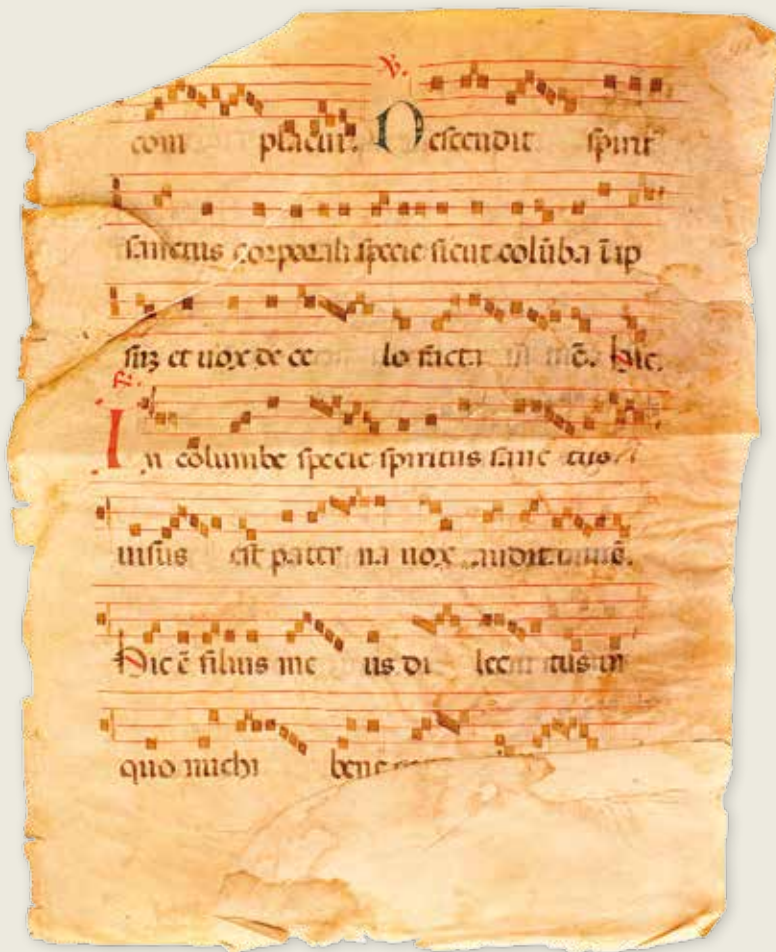 com placuit. V. Descendit spirit
sanctus corporali specie sicut colūba ī ip
suʒ et uox de ce lo facta est mē. Hic.
R. In columbe specie spiritus sanc tus
uisus est pater na uox audita mē.
Hic ē filius me us di lec tus in
quo michi bene